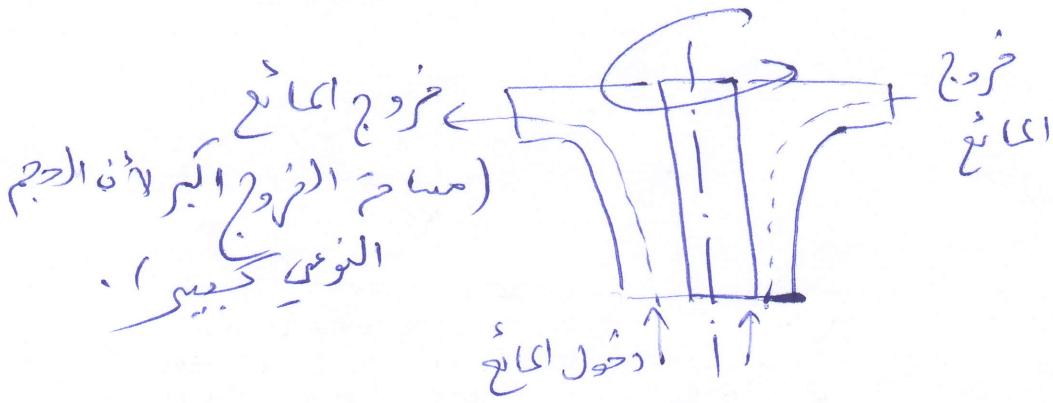 خروج المائع
خروج
المائع
(مساحة الخروج اكبر لأن الحجم
النوعي كبير).
دخول المائع